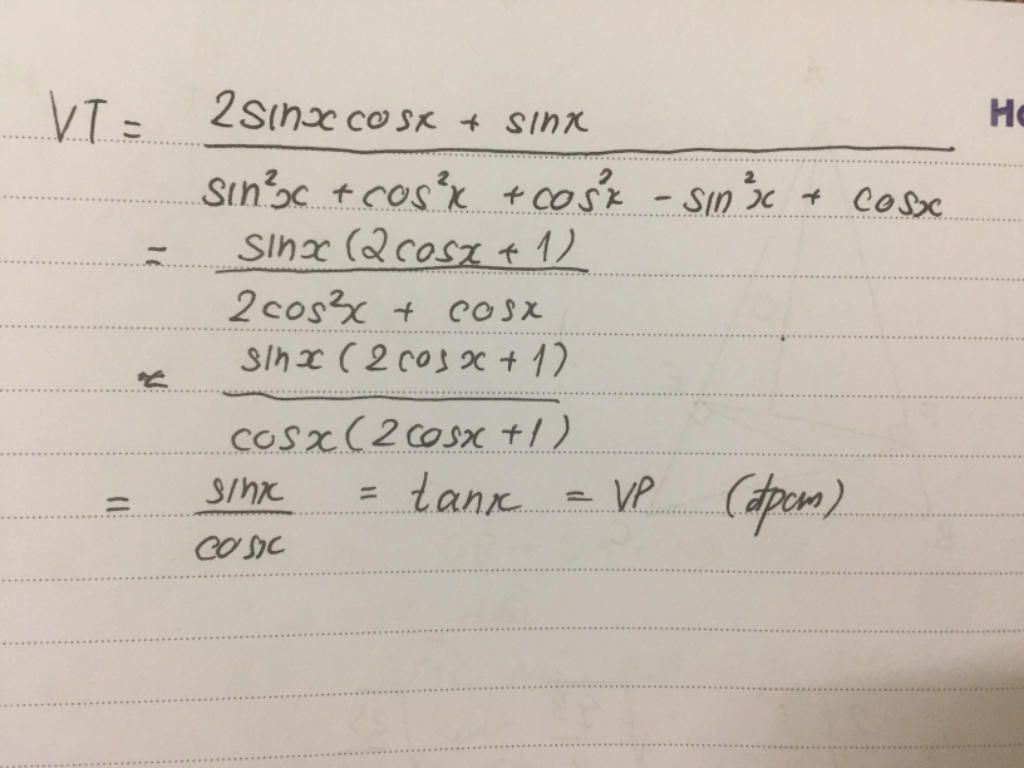 VT = 2sinx cosx + sinx
Ho
sin²x + cos²x + cos²x - sin²x + cosx
= sinx (2cosx + 1)
2cos²x + cosx
= sinx (2cosx + 1)
cosx (2cosx + 1)
= sinx = tanx = VP (đpcm)
cosx